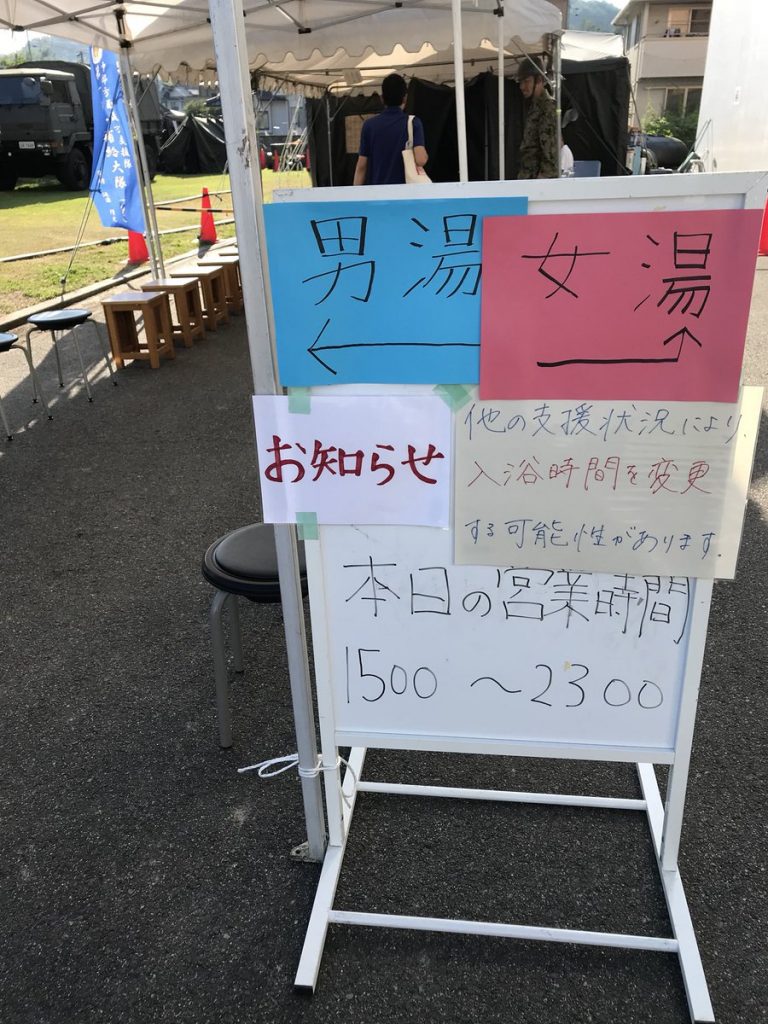 男湯
←
女湯
→
お知らせ
他の支援状況により、
入浴時間を変更
する可能性があります.
本日の営業時間
1500 ～ 2300